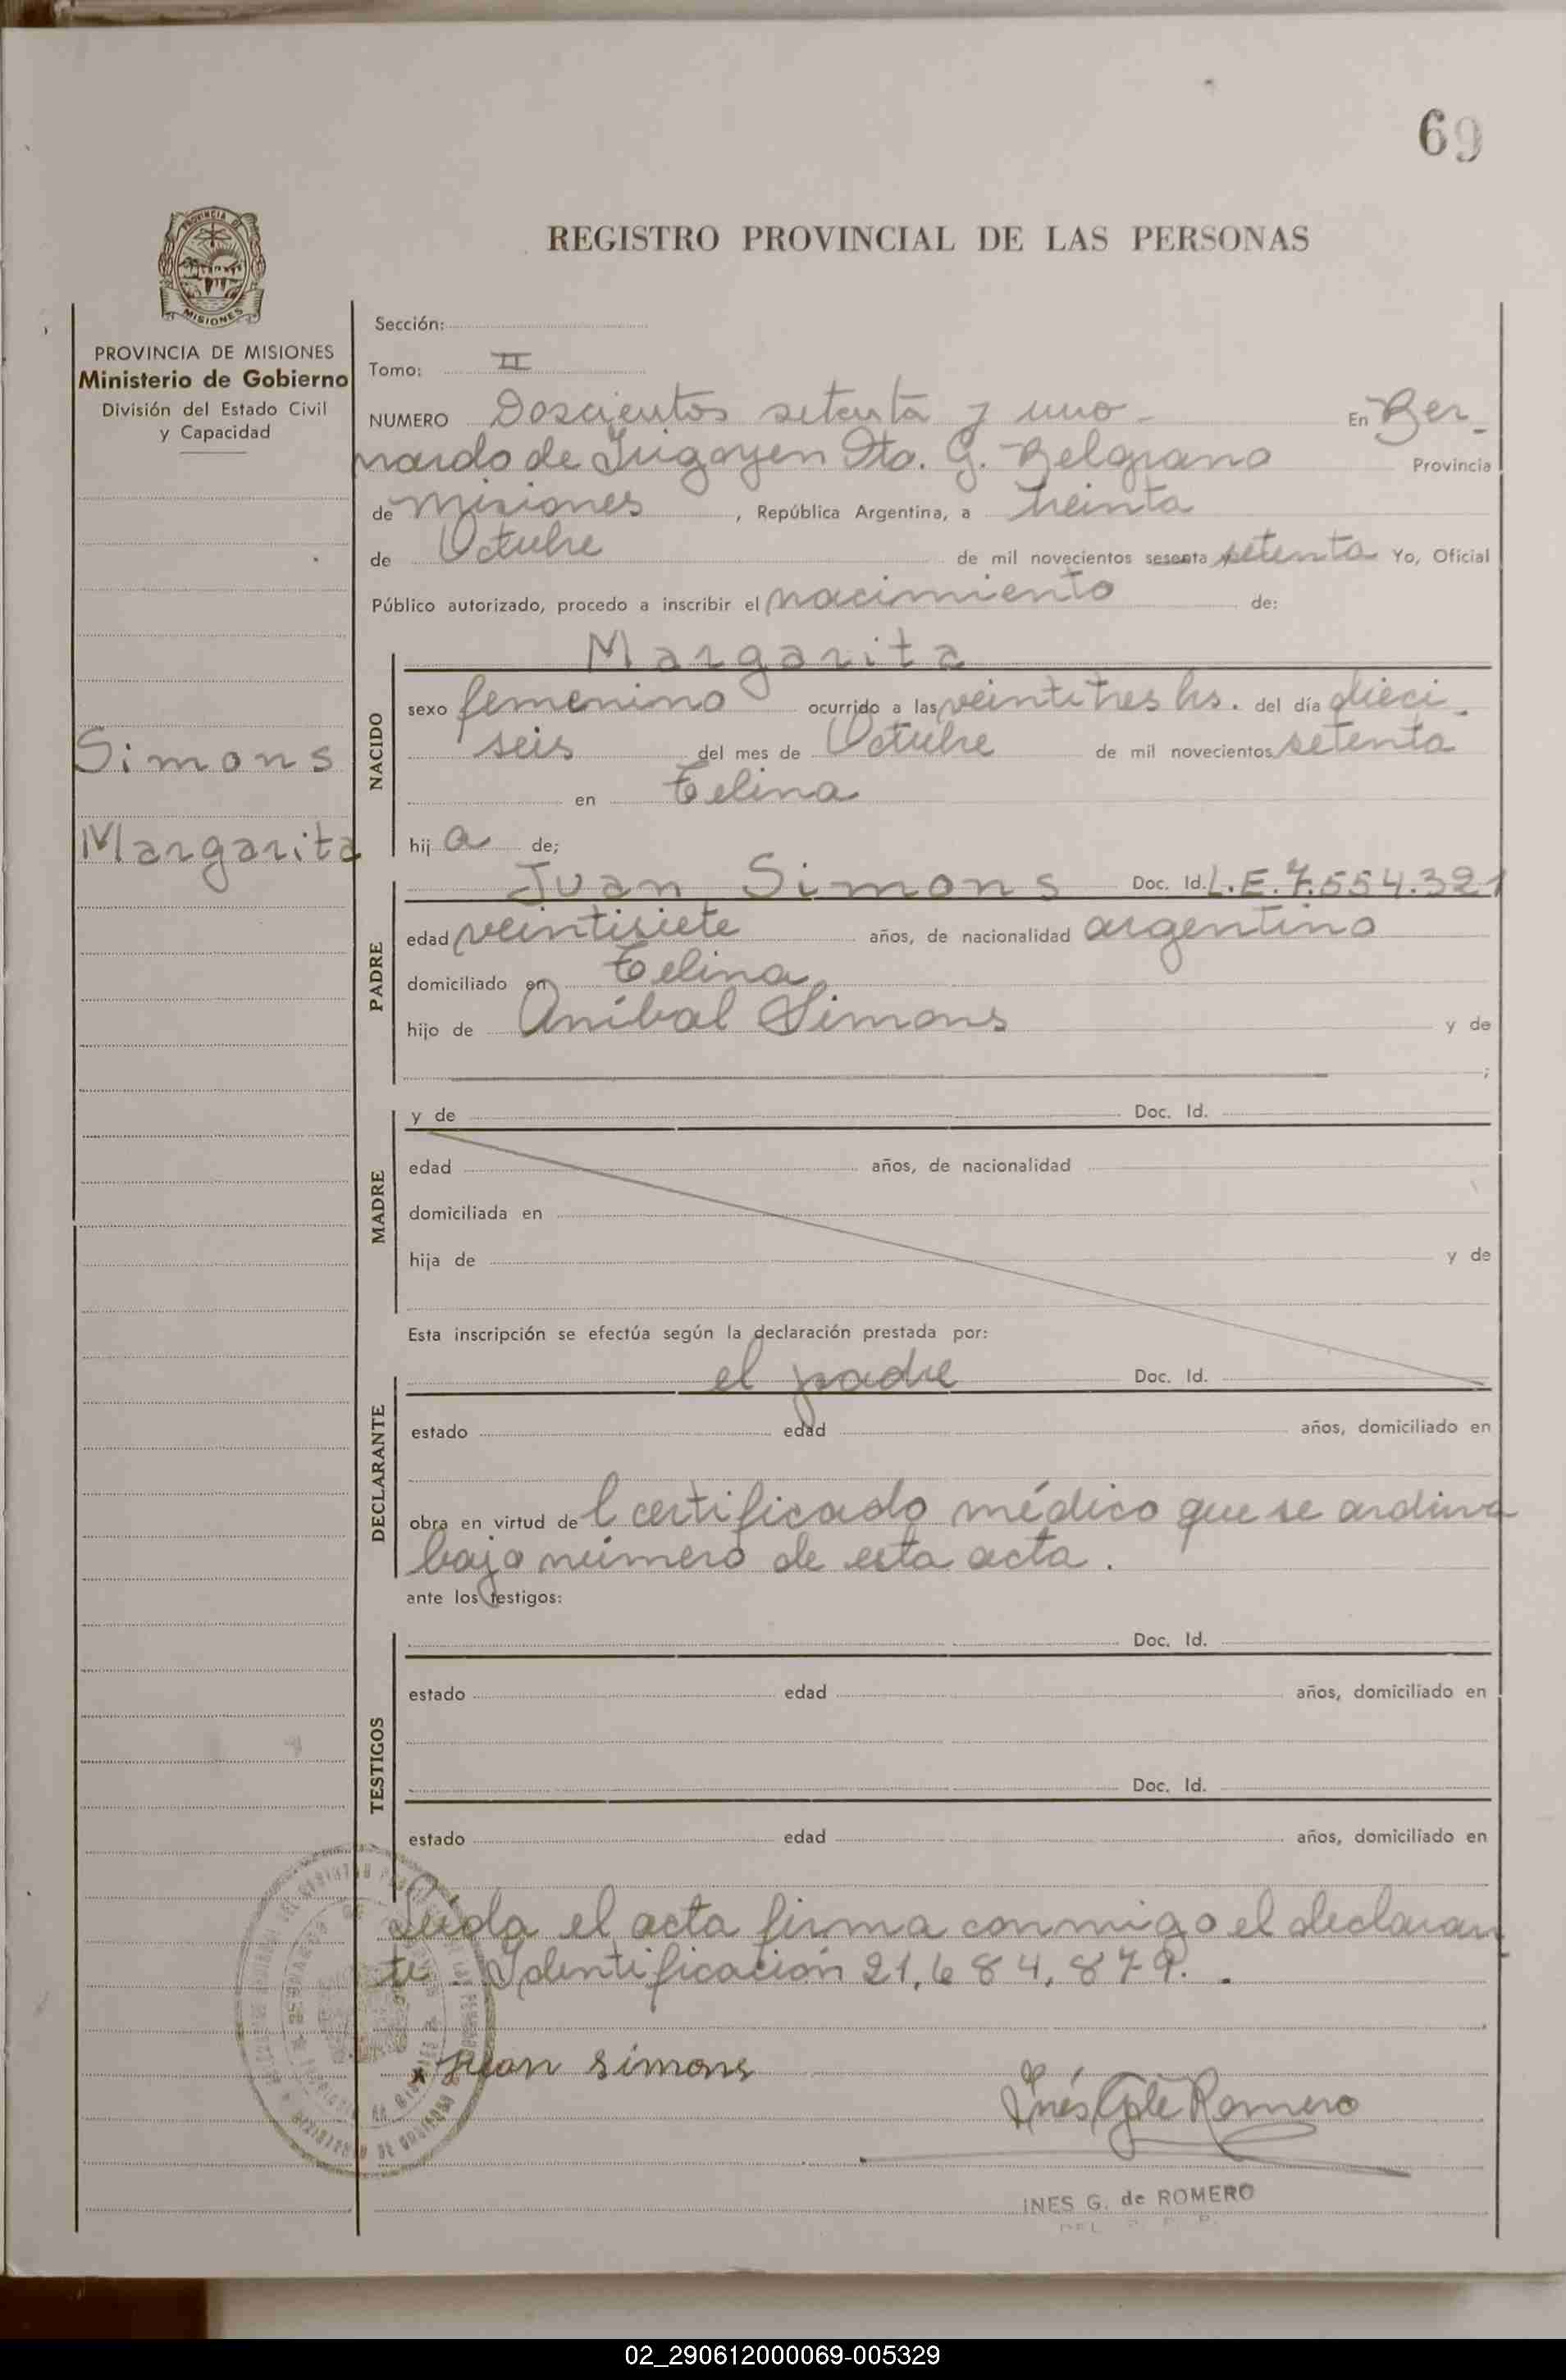 69
REGISTRO PROVINCIAL DE LAS PERSONAS
MISIONES
PROVINCIA DE MISIONES
Ministerio de Gobierno
División del Estado Civil
y Capacidad
Simons
Margarita
Sección:
Tomo: II
NUMERO Doscientos setenta y uno - En Ber-
nardo de Irigoyen Dto. G. Belgrano Provincia
de Misiones, República Argentina, a treinta
de Octubre de mil novecientos sesenta setenta Yo, Oficial
Público autorizado, procedo a inscribir el nacimiento de:
NACIDO
Margarita
sexo femenino ocurrido a las veintitres hs. del día dieci-
seis del mes de Octubre de mil novecientos setenta
en Celina
hija de;
PADRE
Juan Simons Doc. Id. L.E.7.554.321
edad veintisiete años, de nacionalidad argentino
domiciliado en Celina
hijo de Aníbal Simons y de
;
MADRE
y de Doc. Id.
edad años, de nacionalidad
domiciliada en
hija de y de
Esta inscripción se efectúa según la declaración prestada por:
DECLARANTE
el padre Doc. Id.
estado edad años, domiciliado en
obra en virtud del certificado médico que se archiva
bajo número de esta acta.
ante los testigos:
TESTIGOS
Doc. Id.
estado edad años, domiciliado en
Doc. Id.
estado edad años, domiciliado en
Leída el acta firma conmigo el declaran
te - Identificación 21.684.879. .
x Juan simons
Inés G de Romero
INES G. de ROMERO
02_290612000069-005329